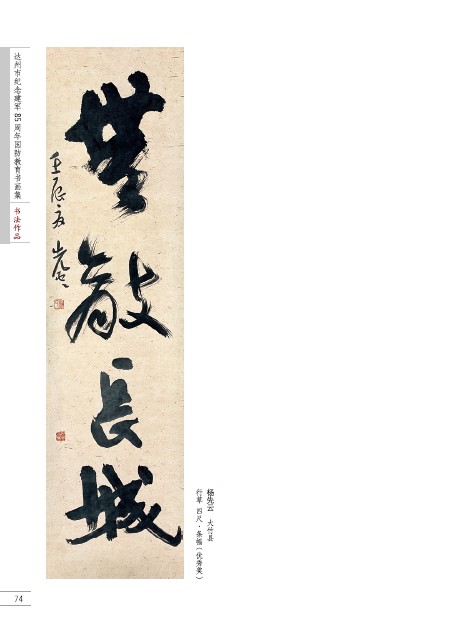 达州市纪念建军85周年国防教育书画集
书法作品
無敵长城
壬辰夏
杨先云 大竹县
行草 四尺·条幅（优秀奖）
74